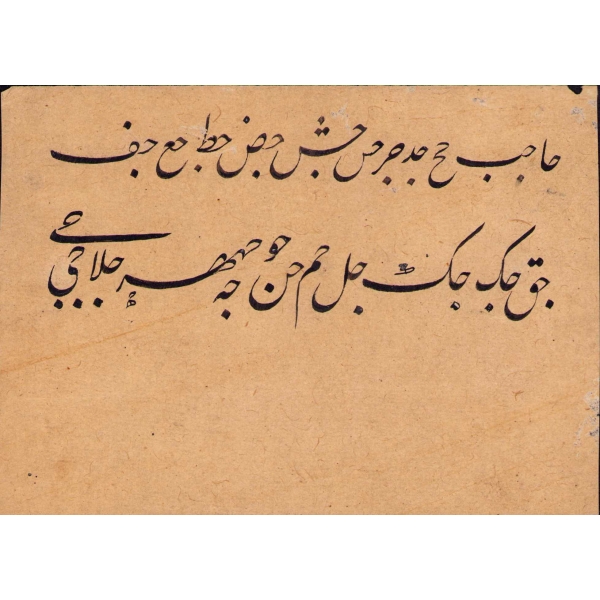 حا جب حج جد جر جس جش جص حط جع جف
جق جک جک جل جم جن جو جه جهه جهر جلا جی جی